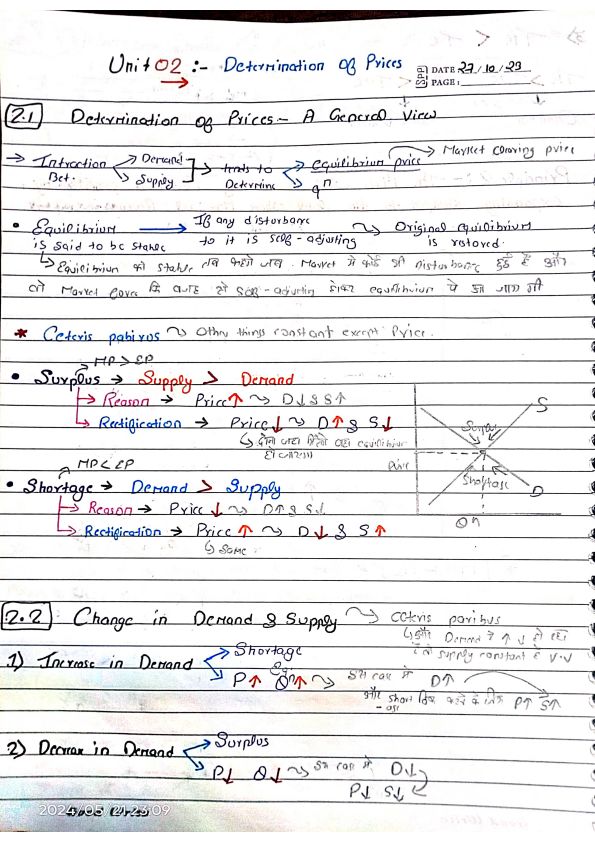 Unit 02 :- Determination of Prices
SPP DATE 27/10/23
PAGE:
2.1 Determination of Prices - A General View
→ Intraction Bet. Demand Supply → tends to Determine → equilibrium price → Market Clearing price
qⁿ
• Equilibrium → If any disturbance ~> Original equilibrium
is said to be stable to it is self-adjusting is restored.
↳ Equilibrium को stable तब कहते जब Market में कोई भी disturbance हुई है और
वो Market force की वजह से self-adjusting होकर equilibrium पे आ जाए
* Ceteris pabirus ~> Other things constant except Price.
MP > EP
• Surplus → Supply > Demand
→ Reason → Price↑ ~> D↓ & S↑
→ Rectification → Price↓ ~> D↑ & S↓
↳ दोनों जहा मिलेंगे वहा equilibrium
हो जाएगा
S
Surplus
Price
Shortage
D
Qⁿ
MP < EP
• Shortage → Demand > Supply
→ Reason → Price ↓ ~> D↑ & S↓
→ Rectification → Price ↑ ~> D↓ & S↑
↳ Same.
2.2 Change in Demand & Supply ~> ceteris paribus
↳ और Demand में ↑↓ हो रहा
है तो supply constant है V.V
1) Increase in Demand → Shortage
→ P↑ Qⁿ↑ ~> इस case में D↑
और shortage ठीक करने के लिए P↑ S↑
2) Decrease in Demand → Surplus
→ P↓ Q↓ ~> इस case में D↓
P↓ S↓
2024/05/21 23:09